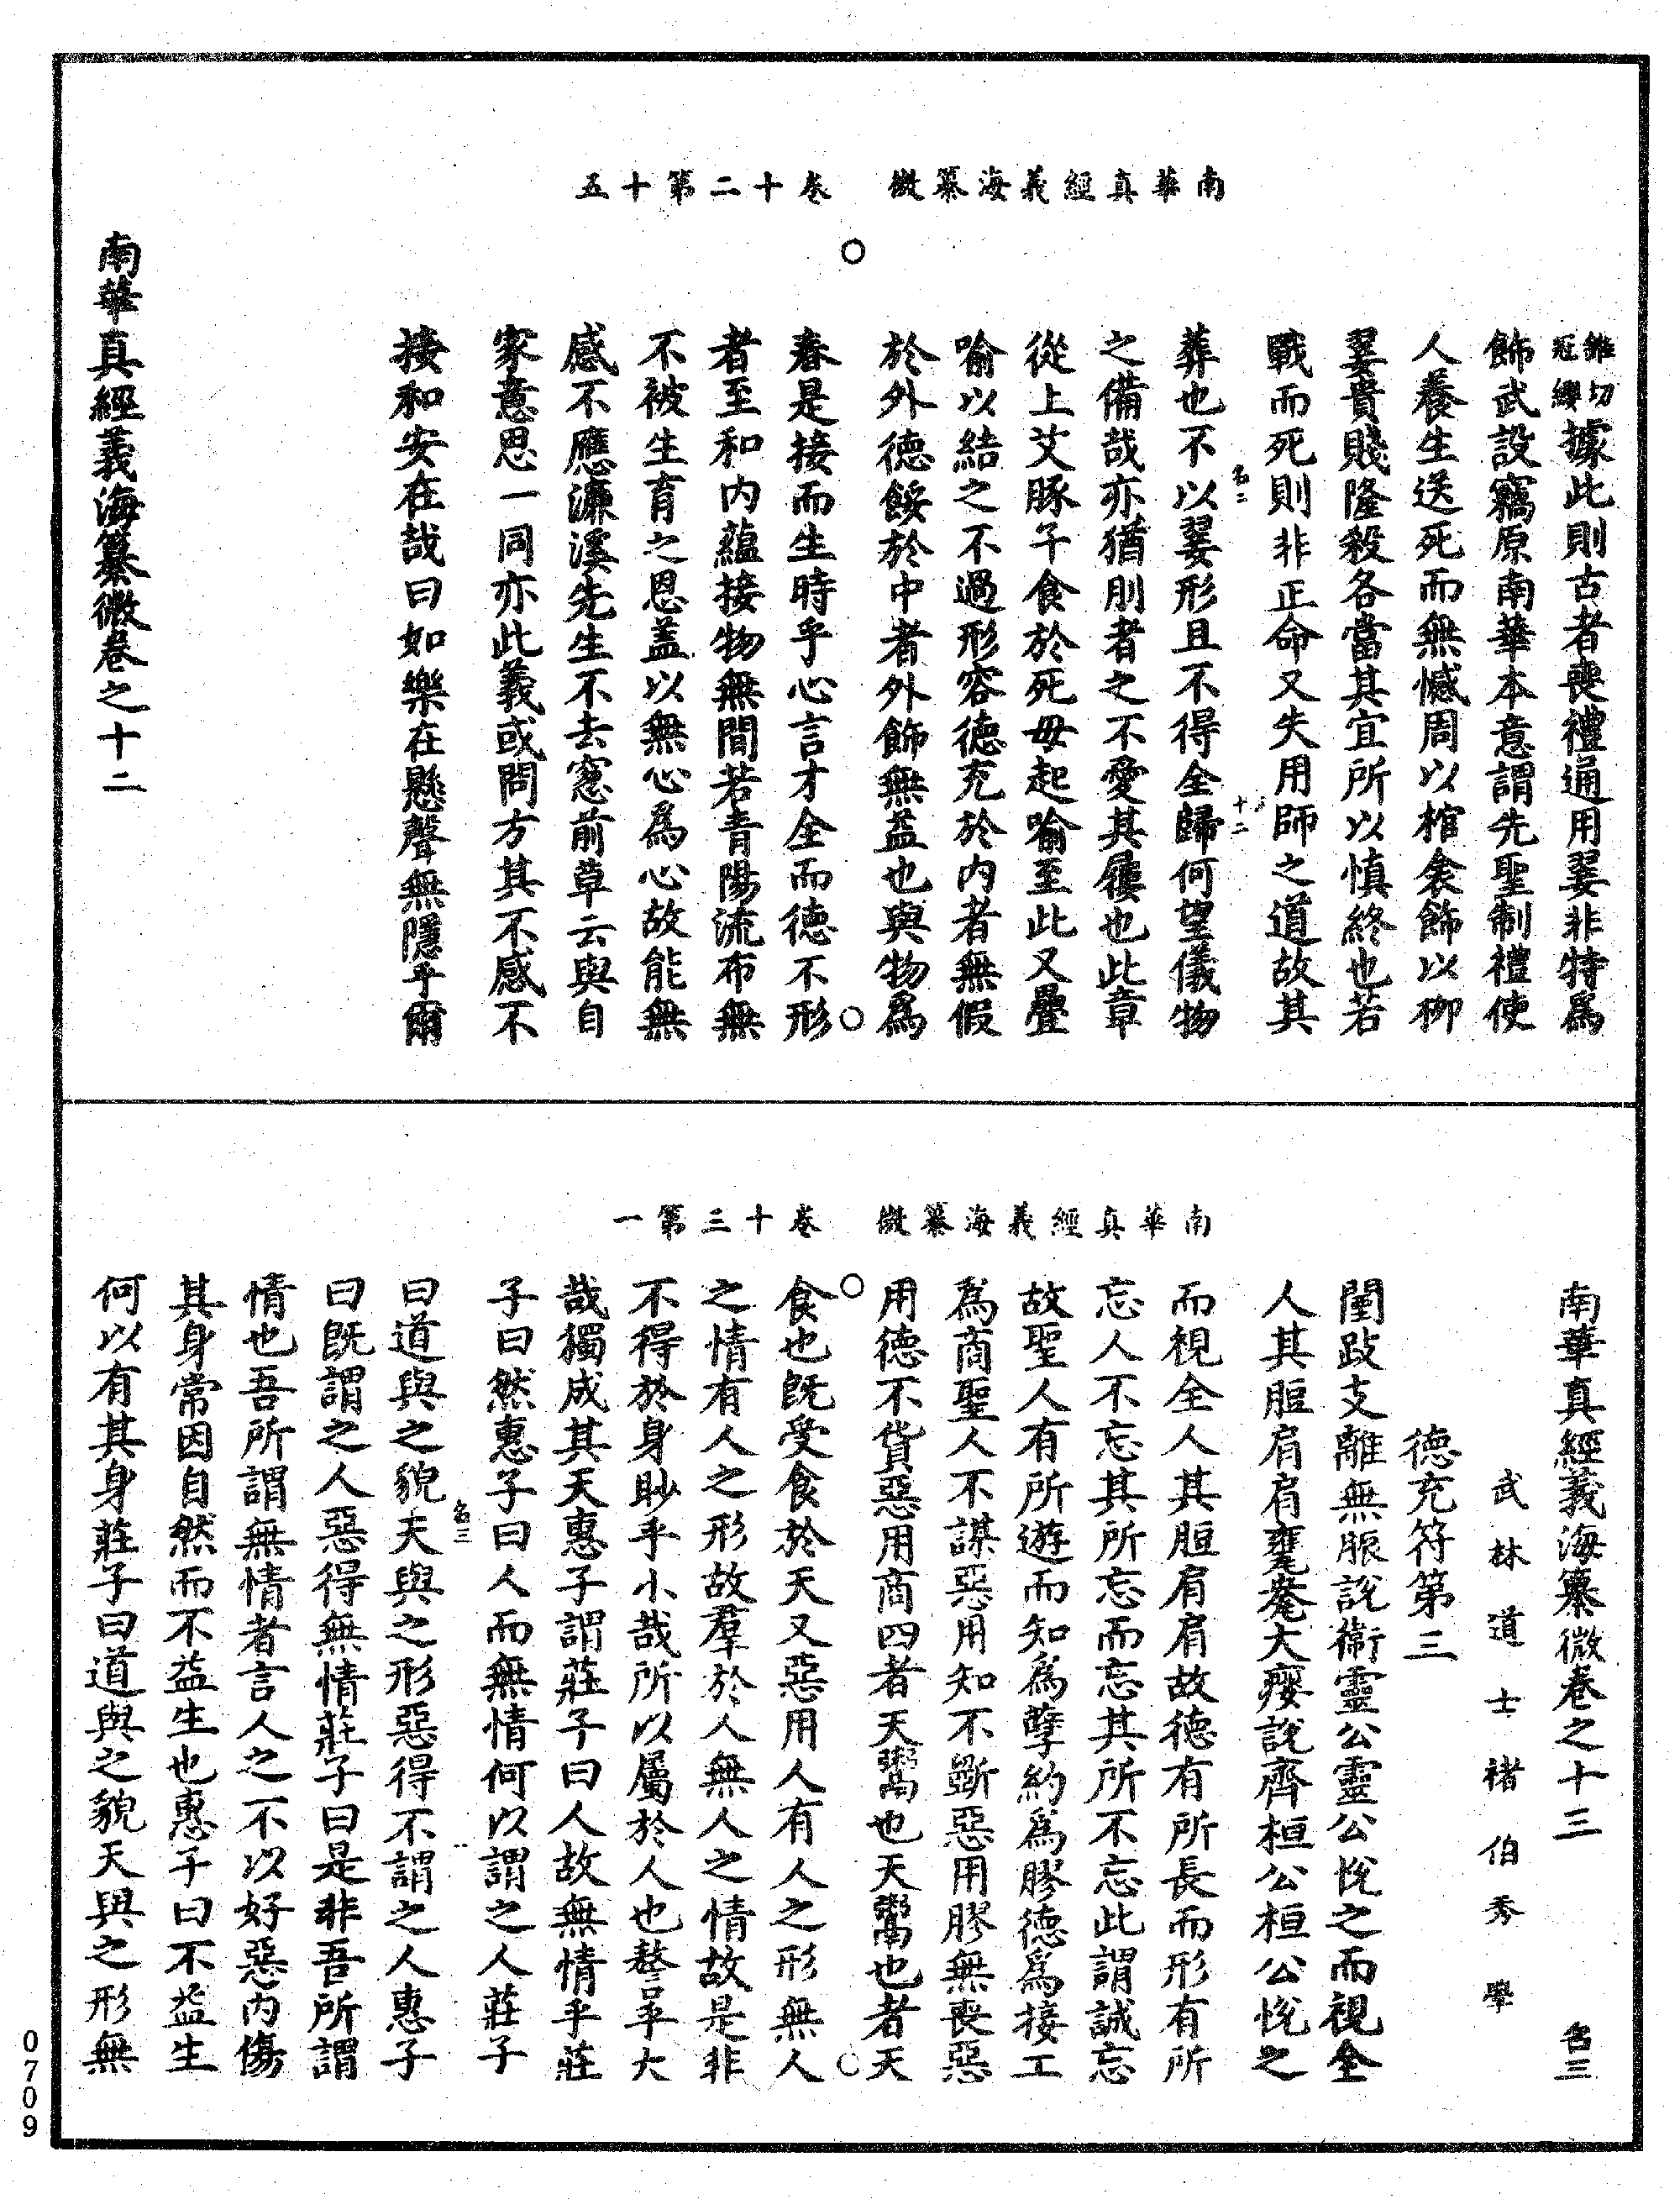 南華真經義海纂微　卷十二第十五
雖切冠纓據此則古者喪禮通用翣非特爲
飾武設竊原南華本意謂先聖制禮使
人養生送死而無憾周以棺衾飾以柳
翣貴賤隆殺各當其宜所以慎終也若
戰而死則非正命又失用師之道故其
名二　十二
葬也不以翣形且不得全歸何望儀物
之備哉亦猶刖者之不愛其屨也此章
從上艾豚子食於死毋起喻至此又疊
喻以結之不過形容德充於内者無假
於外德餒於中者外飾無益也與物爲
春是接而生時乎心言才全而德不形
者至和内蘊接物無間若青陽流布無
不被生育之恩蓋以無心爲心故能無
感不應濂溪先生不去窻前草云與自
家意思一同亦此義或問方其不感不
接和安在哉曰如樂在懸聲無隱乎爾
南華真經義海纂微卷之十二
南華真經義海纂微　卷十三第一
南華真經義海纂微卷之十三　名三
武林道士褚伯秀學
德充符第三
闉跂支離無脤說衞靈公靈公悅之而視全
人其脰肩肩甕㼜大癭說齊桓公桓公悅之
而視全人其脰肩肩故德有所長而形有所
忘人不忘其所忘而忘其所不忘此謂誠忘
故聖人有所遊而知爲孽約爲膠德爲接工
爲商聖人不謀惡用知不斲惡用膠無喪惡
用德不貨惡用商四者天鬻也天鬻也者天
食也既受食於天又惡用人有人之形無人
之情有人之形故羣於人無人之情故是非
不得於身眇乎小哉所以屬於人也謷乎大
哉獨成其天惠子謂莊子曰人故無情乎莊
子曰然惠子曰人而無情何以謂之人莊子
名三
曰道與之貌天與之形惡得不謂之人惠子
曰既謂之人惡得無情莊子曰是非吾所謂
情也吾所謂無情者言人之不以好惡内傷
其身常因自然而不益生也惠子曰不益生
何以有其身莊子曰道與之貌天與之形無
0709